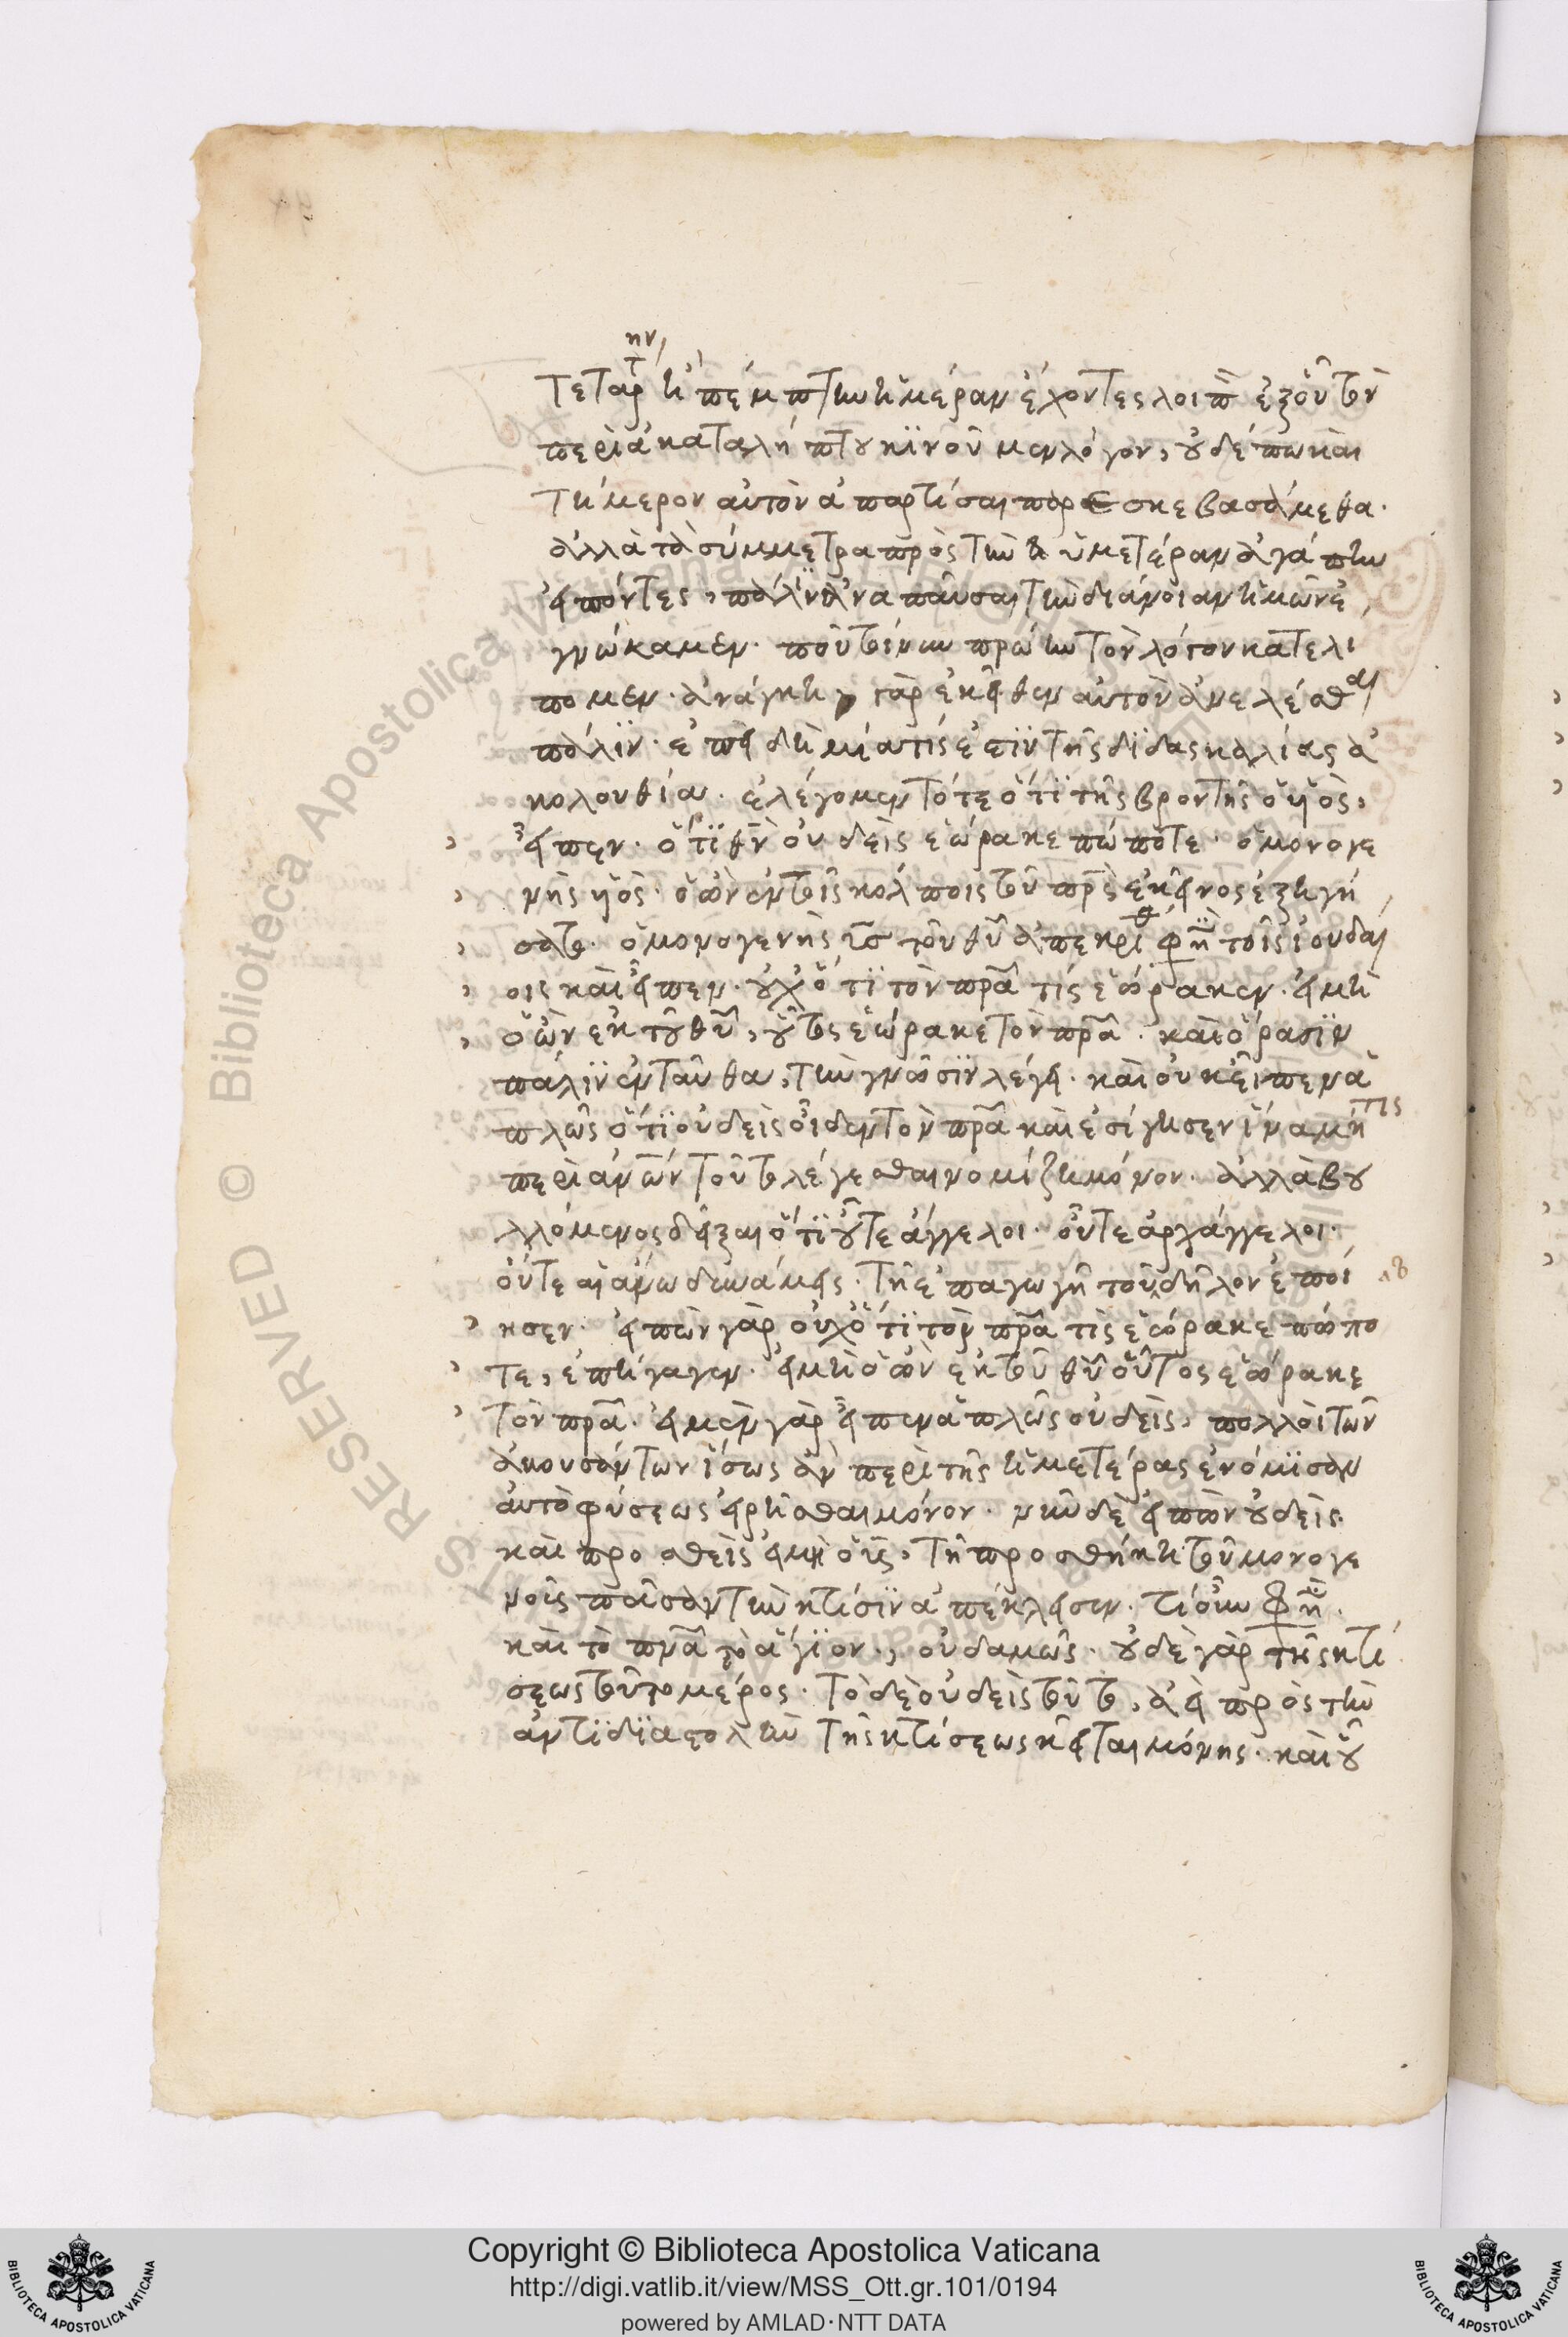 ην
τετάρτ ἢ πέμπτην ἡμέραν ἔχοντες λοιπὸν ἐξ οὗ τὸν
περὶ ἀκαταλήπτου κϊνοῦμεν λόγον, οὐδέπω καὶ
τήμερον αὐτὸν ἀπαρτίσαι παρεσκεβασάμεθα·
ἀλλὰ τὰ σύμμετρα πρὸς τὴν ὑμετέραν ἀγάπην
εἰπόντες, πάλϊν ἀναπαῦσαι τὴν διάνοιαν ἡμῶν ἐ
γνώκαμεν· ποῦ τίνυν πρώην τὸν λόγον κατελί
πομεν· ἀνάγκη γὰρ ἐκεῖθεν αὐτὸν ἀνελέσθαι
πάλϊν· ἐπειδὴ μία τίς ἐστϊν τῆς δϊδασκαλίας ἀ
κολουθία· ἐλέγομεν τότε ὅτϊ τῆς βροντῆς ὁ υἱὸς,
εἶπεν· ὅτϊ θν οὐδεὶς ἑώρακε πώποτε· ὁ μονογε
νὴς υἱός· ὁ ὢν ἐν τοῖς κόλποις τοῦ πρς ἐκεῖνος ἐξηγή
σατο· ὁ μονογενὴς ισ τοῦ θυ ἀπεκρίθ φη τοῖς ἰουδαί
οις καὶ εἶπεν· οὐχ ὅτϊ τὸν πρα τίς ἑώρακεν· εἰ μὴ
ὁ ὢν ἐκ τοῦ θυ, οὗτος ἑώρακε τὸν πρα· καὶ ὅρασϊν
πάλϊν ἐνταῦθα, τὴν γνῶσϊν λέγει· καὶ οὐκ εἶπεν ἁ
πλῶς ὅτϊ οὐδεὶς οἶδεν τὸν πρα καὶ ἐσίγησεν ἵνα μή τις
περὶ ανων τοῦτο λέγεσθαι νομίζη μόνον· ἀλλὰ βου
λλόμενος δεῖξαι ὅτϊ οὔτε ἄγγελοι· οὔτε ἀρχάγγελοι·
οὔτε αἱ ἄνω δυνάμεις· τῆ ἐπαγωγῆ τοῦ δῆλον ἐποί
ησεν· εἰπὼν γὰρ οὐχ ὅτϊ τὸν πρα τὶς ἑώρακε πώπο
τε, ἐπήγαγεν· εἰ μὴ ὁ ὢν ἐκ τοῦ θυ οὗτος ἑώρακε
τὸν πρα· εἰ μὲν γὰρ εἶπεν ἁπλῶς οὐδεὶς, πολλοὶ τῶν
ἀκουσάντων ἴσως ἂν περὶ τῆς ἡμετέρας ἐνόμϊσαν
αὐτὸ φύσεως εἰρῆσθαι μόνον· νυν δὲ εἰπὼν οὐδεὶς
καὶ προσθεὶς εἰ μὴ ὁ υς, τῆ προσθήκη τοῦ μονογε
νοῦς πᾶσαν τὴν κτίσϊν ἀπέκλεισεν· τί οὖν φη·
καὶ τὸ πνα τὸ ἅγϊον·, οὐδαμῶς· οὐδὲ γὰρ τῆς κτί
σεως τοῦτο μέρος· τὸ δὲ οὐδεὶς τοῦτο, ἀεὶ πρὸς τὴν
ἀντϊδϊαστολὴν τῆς κτίσεως κεῖται μόνης· καὶ οὐ